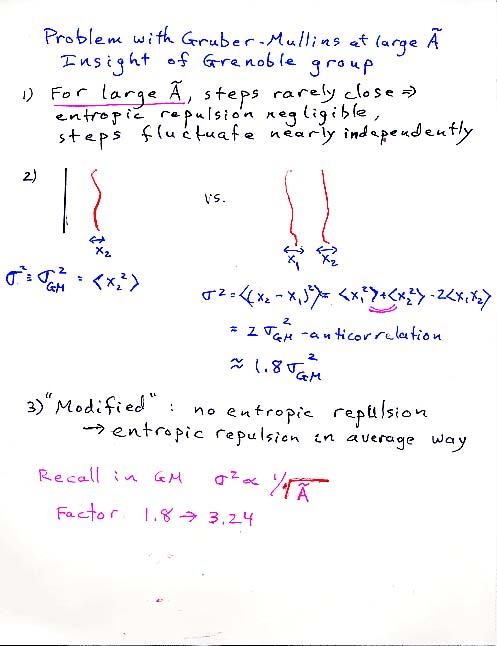 Problem with Gruber-Mullins at large Ã
Insight of Grenoble group
1) For large Ã, steps rarely close ⇒
entropic repulsion negligible,
steps fluctuate nearly independently
2)
vs.
x₂
x₁ x₂
σ² = σ²_GM = <x₂²>
σ² = <(x₂ - x₁)²> = <x₁²> + <x₂²> - 2<x₁x₂>
= 2σ²_GM - anticorrelation
≈ 1.8 σ²_GM
3) "Modified" : no entropic repulsion
→ entropic repulsion in average way
Recall in GM σ² ∝ 1/√Ã
Factor 1.8 → 3.24